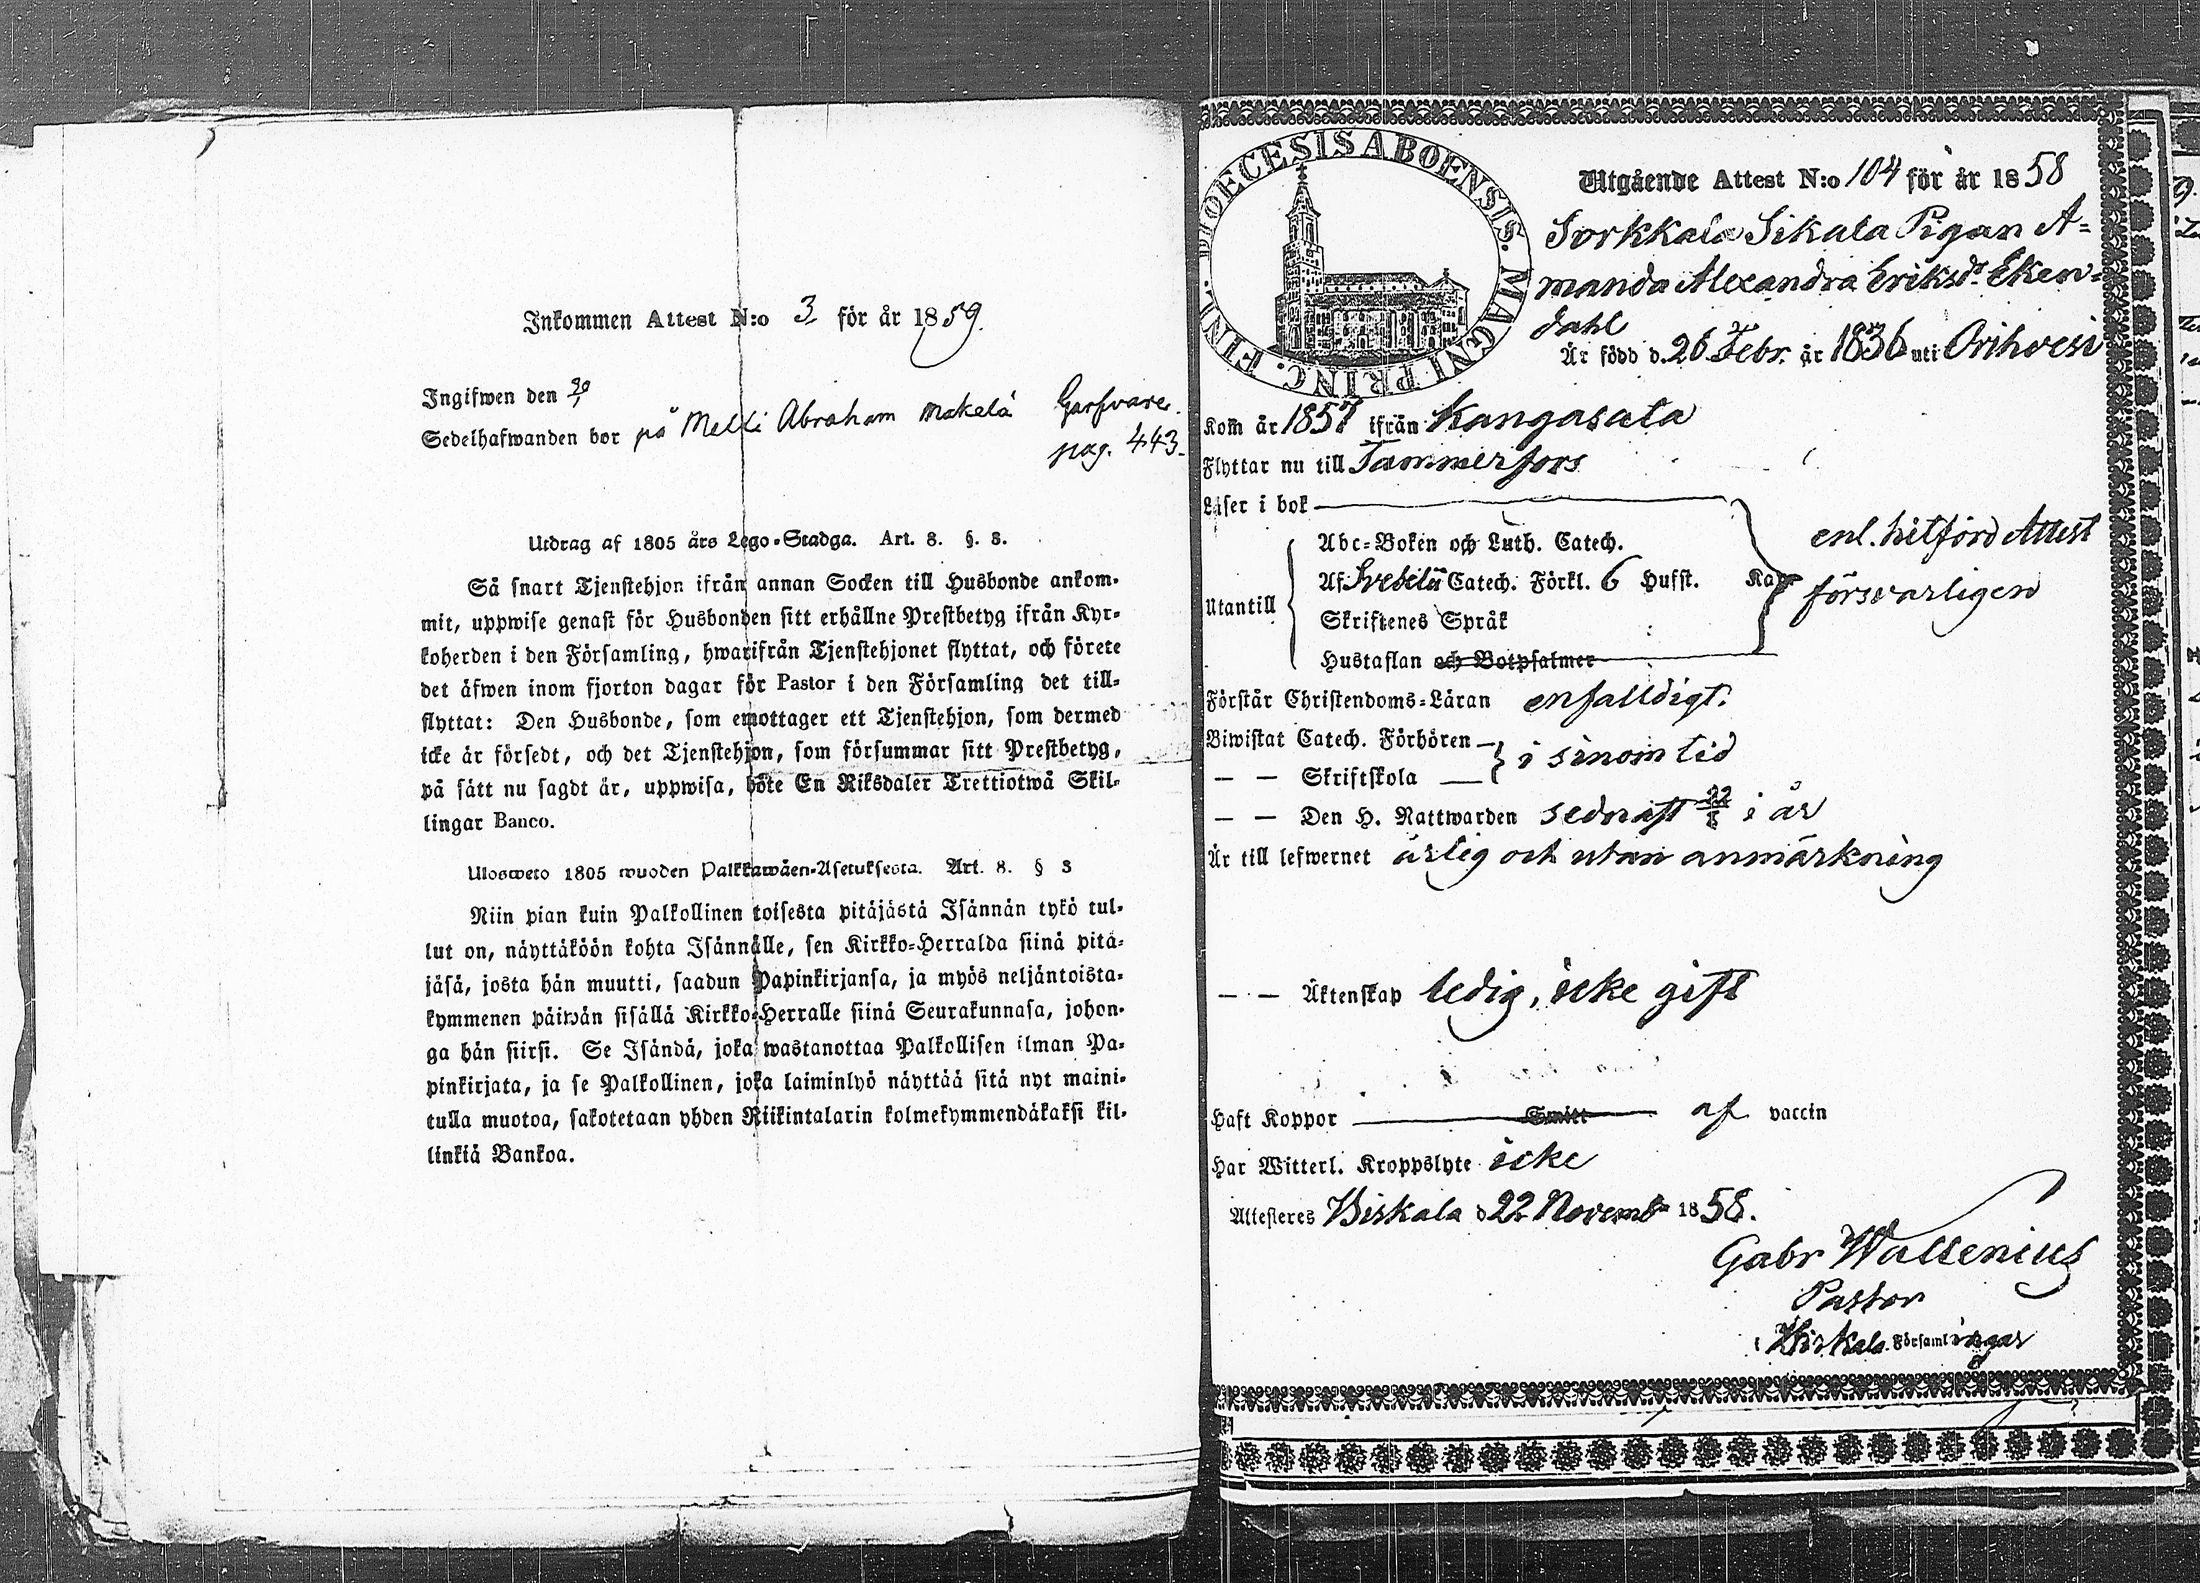 Inkommen Attest N:o 3 för år 1859.
Ingifwen den
Sedelhafwanden bor på Melli Abraham Makelä Garfvare.
pag. 443.
Utdrag af 1805 års Lego-Stadga. Art. 8. §. 8.
Så snart Tjenstehjon ifrån annan Socken till Husbonde ankom-
mit, uppwise genast för Husbonden sitt erhållne Prestbetyg ifrån Kyr-
koherden i den Församling, hwarifrån Tjenstehjonet flyttat, och förete
det äfwen inom fjorton dagar för Pastor i den Församling det till-
flyttat: Den Husbonde, som emottager ett Tjenstehjon, som dermed
icke är försedt, och det Tjenstehjon, som försummar sitt Prestbetyg,
på sätt nu sagdt är, uppwisa, böte En Riksdaler Trettiotwå Skil-
lingar Banco.
Ulosweto 1805 wuoden Palkkawäen-Asetuksesta. Art. 8. § 8
Niin pian kuin Palkollinen toisesta pitäjästä Isännän tykö tul-
lut on, näyttäköön kohta Isännälle, sen Kirkko-Herralda siinä pitä-
jäsä, josta hän muutti, saadun Papinkirjansa, ja myös neljäntoista-
kymmenen päiwän sisällä Kirkko-Herralle siinä Seurakunnasa, johon-
ga hän siirsi. Se Isändä, joka wastanottaa Palkollisen ilman Pa-
pinkirjata, ja se Palkollinen, joka laiminlyö näyttää sitä nyt maini-
tulla muotoa, sakotetaan yhden Riikintalarin kolmekymmendäkaksi kil-
linkiä Bankoa.
DIOECESIS ABOENSIS. MAGNI PRINC. FINL.
Utgående Attest N:o 104 för år 1858
Sorkkala Sikala Pigan A-
manda Alexandra Eriksdr Eken-
dahl
Är född d. 26 Febr. år 1836 uti Orihvesi
Kom år 1857 ifrån Kangasala
Flyttar nu till Tammerfors
Läser i bok
Abc-Boken och Luth. Catech.
enl. hitförd Attest
Af Svebelii Catech. Förkl. 6 Hufst. Kap
försvarligen
Utantill
Skriftenes Språk
Hustaflan och Botpsalmer
Förstår Christendoms-Läran enfalldigt.
Biwistat Catech. Förhören
i sinom tid
— — Skriftskola
— — Den H. Nattwarden sednast i år
Är till lefwernet ärlig och utan anmärkning
— — Äktenskap ledig, icke gift
Haft Koppor Smitt af vaccin
Har Witterl. Kroppslyte icke
Attesteres Birkala d 22 Novemb 1858.
Gabr Wallenius
Pastor
i Birkala Församlingar